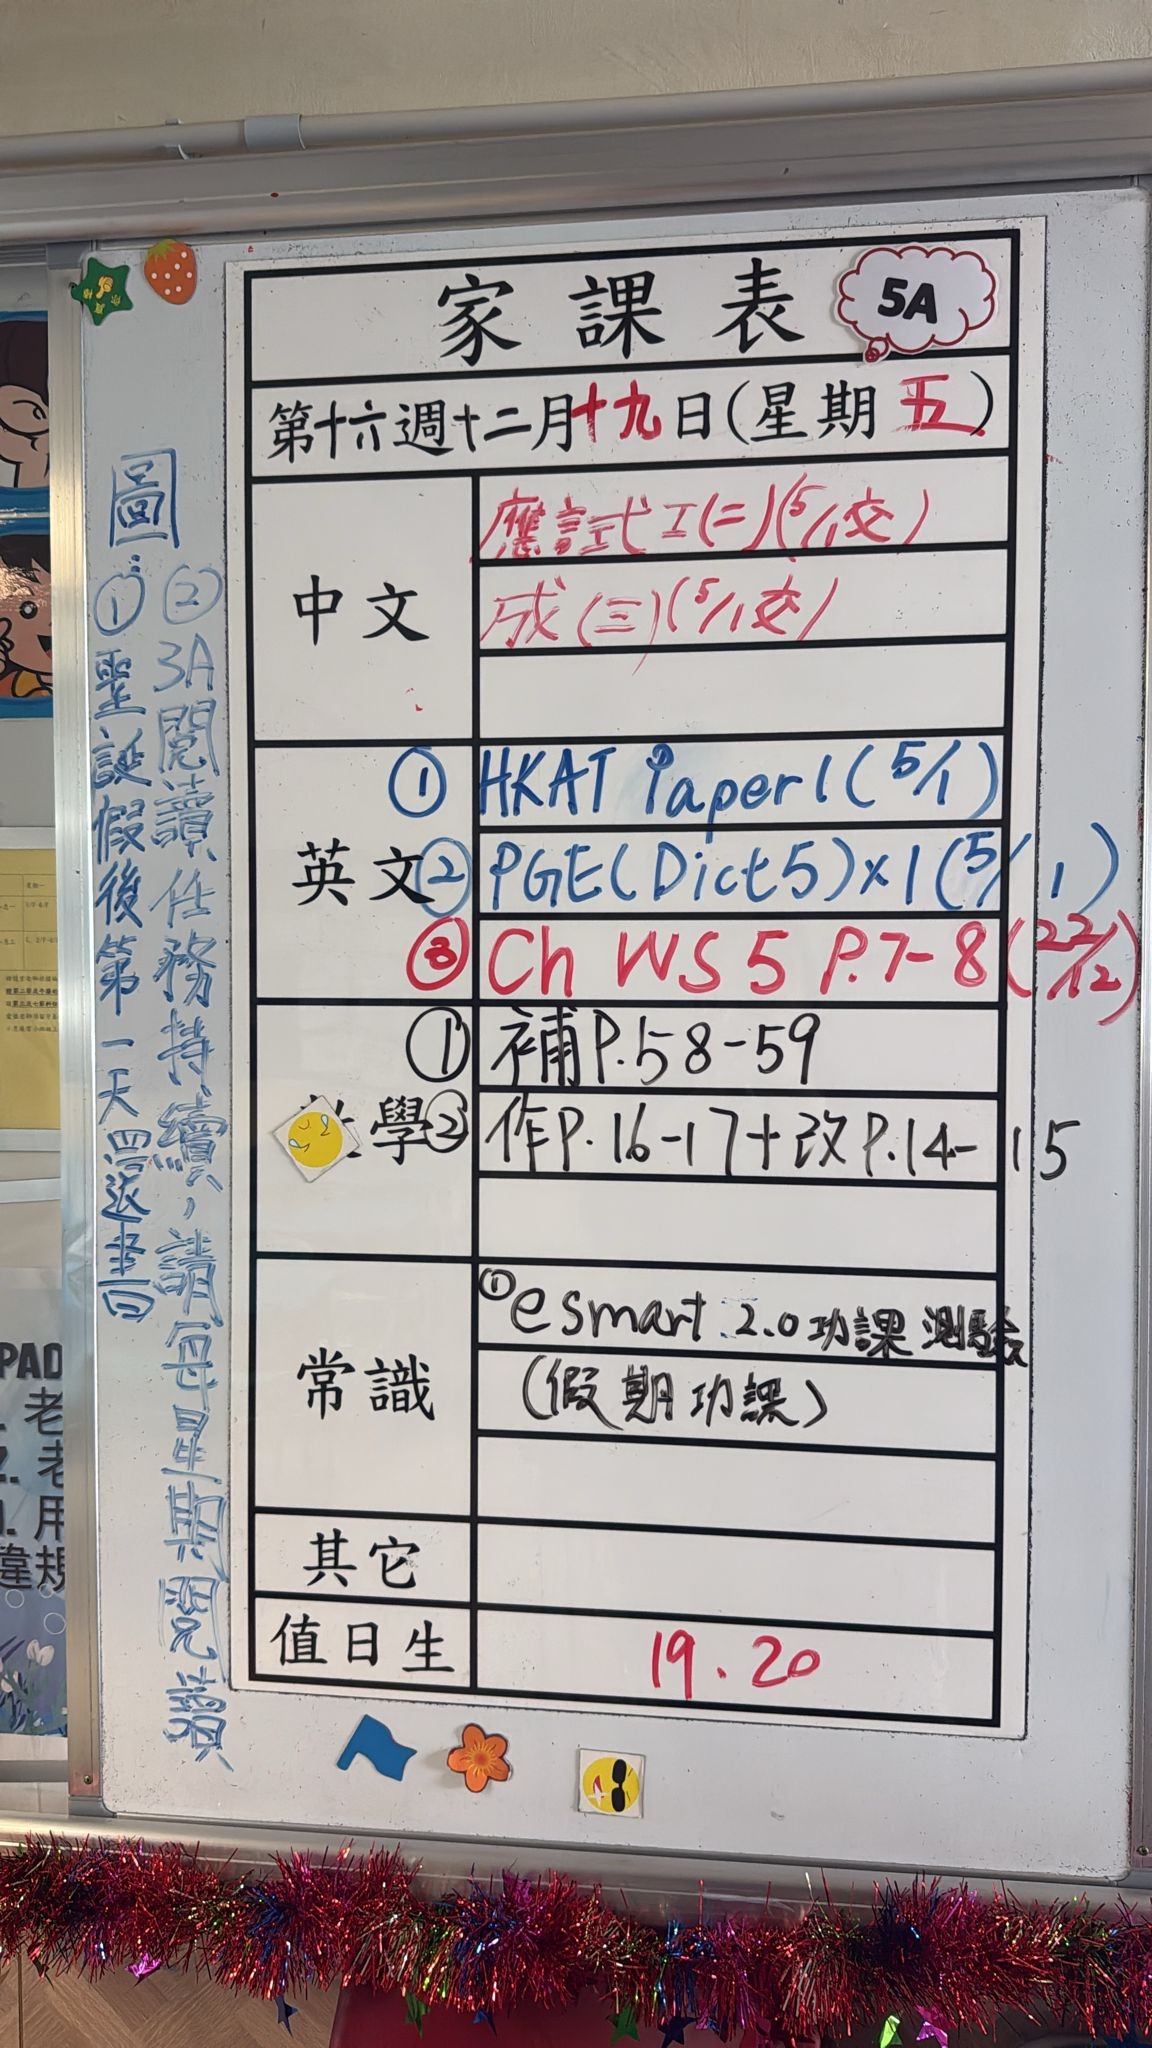 家課表
5A
第十六週十二月十九日(星期五)
中文
應試式工(二)(5/1交)
成(三)(5/1交)
英文
① HKAT Paper 1 (5/1)
② PGE (Dict 5) x 1 (5/1)
③ Ch WS 5 P.7-8 (22/12)
學
① 補P.58-59
② 作P.16-17+改P.14-15
常識
① e smart 2.0 功課 測驗
(假期功課)
其它
值日生
19.20
圖:
①聖誕假後第一天還書
②3A閱讀任務持續,請每星期閱讀
PAD
老
老
用
違規